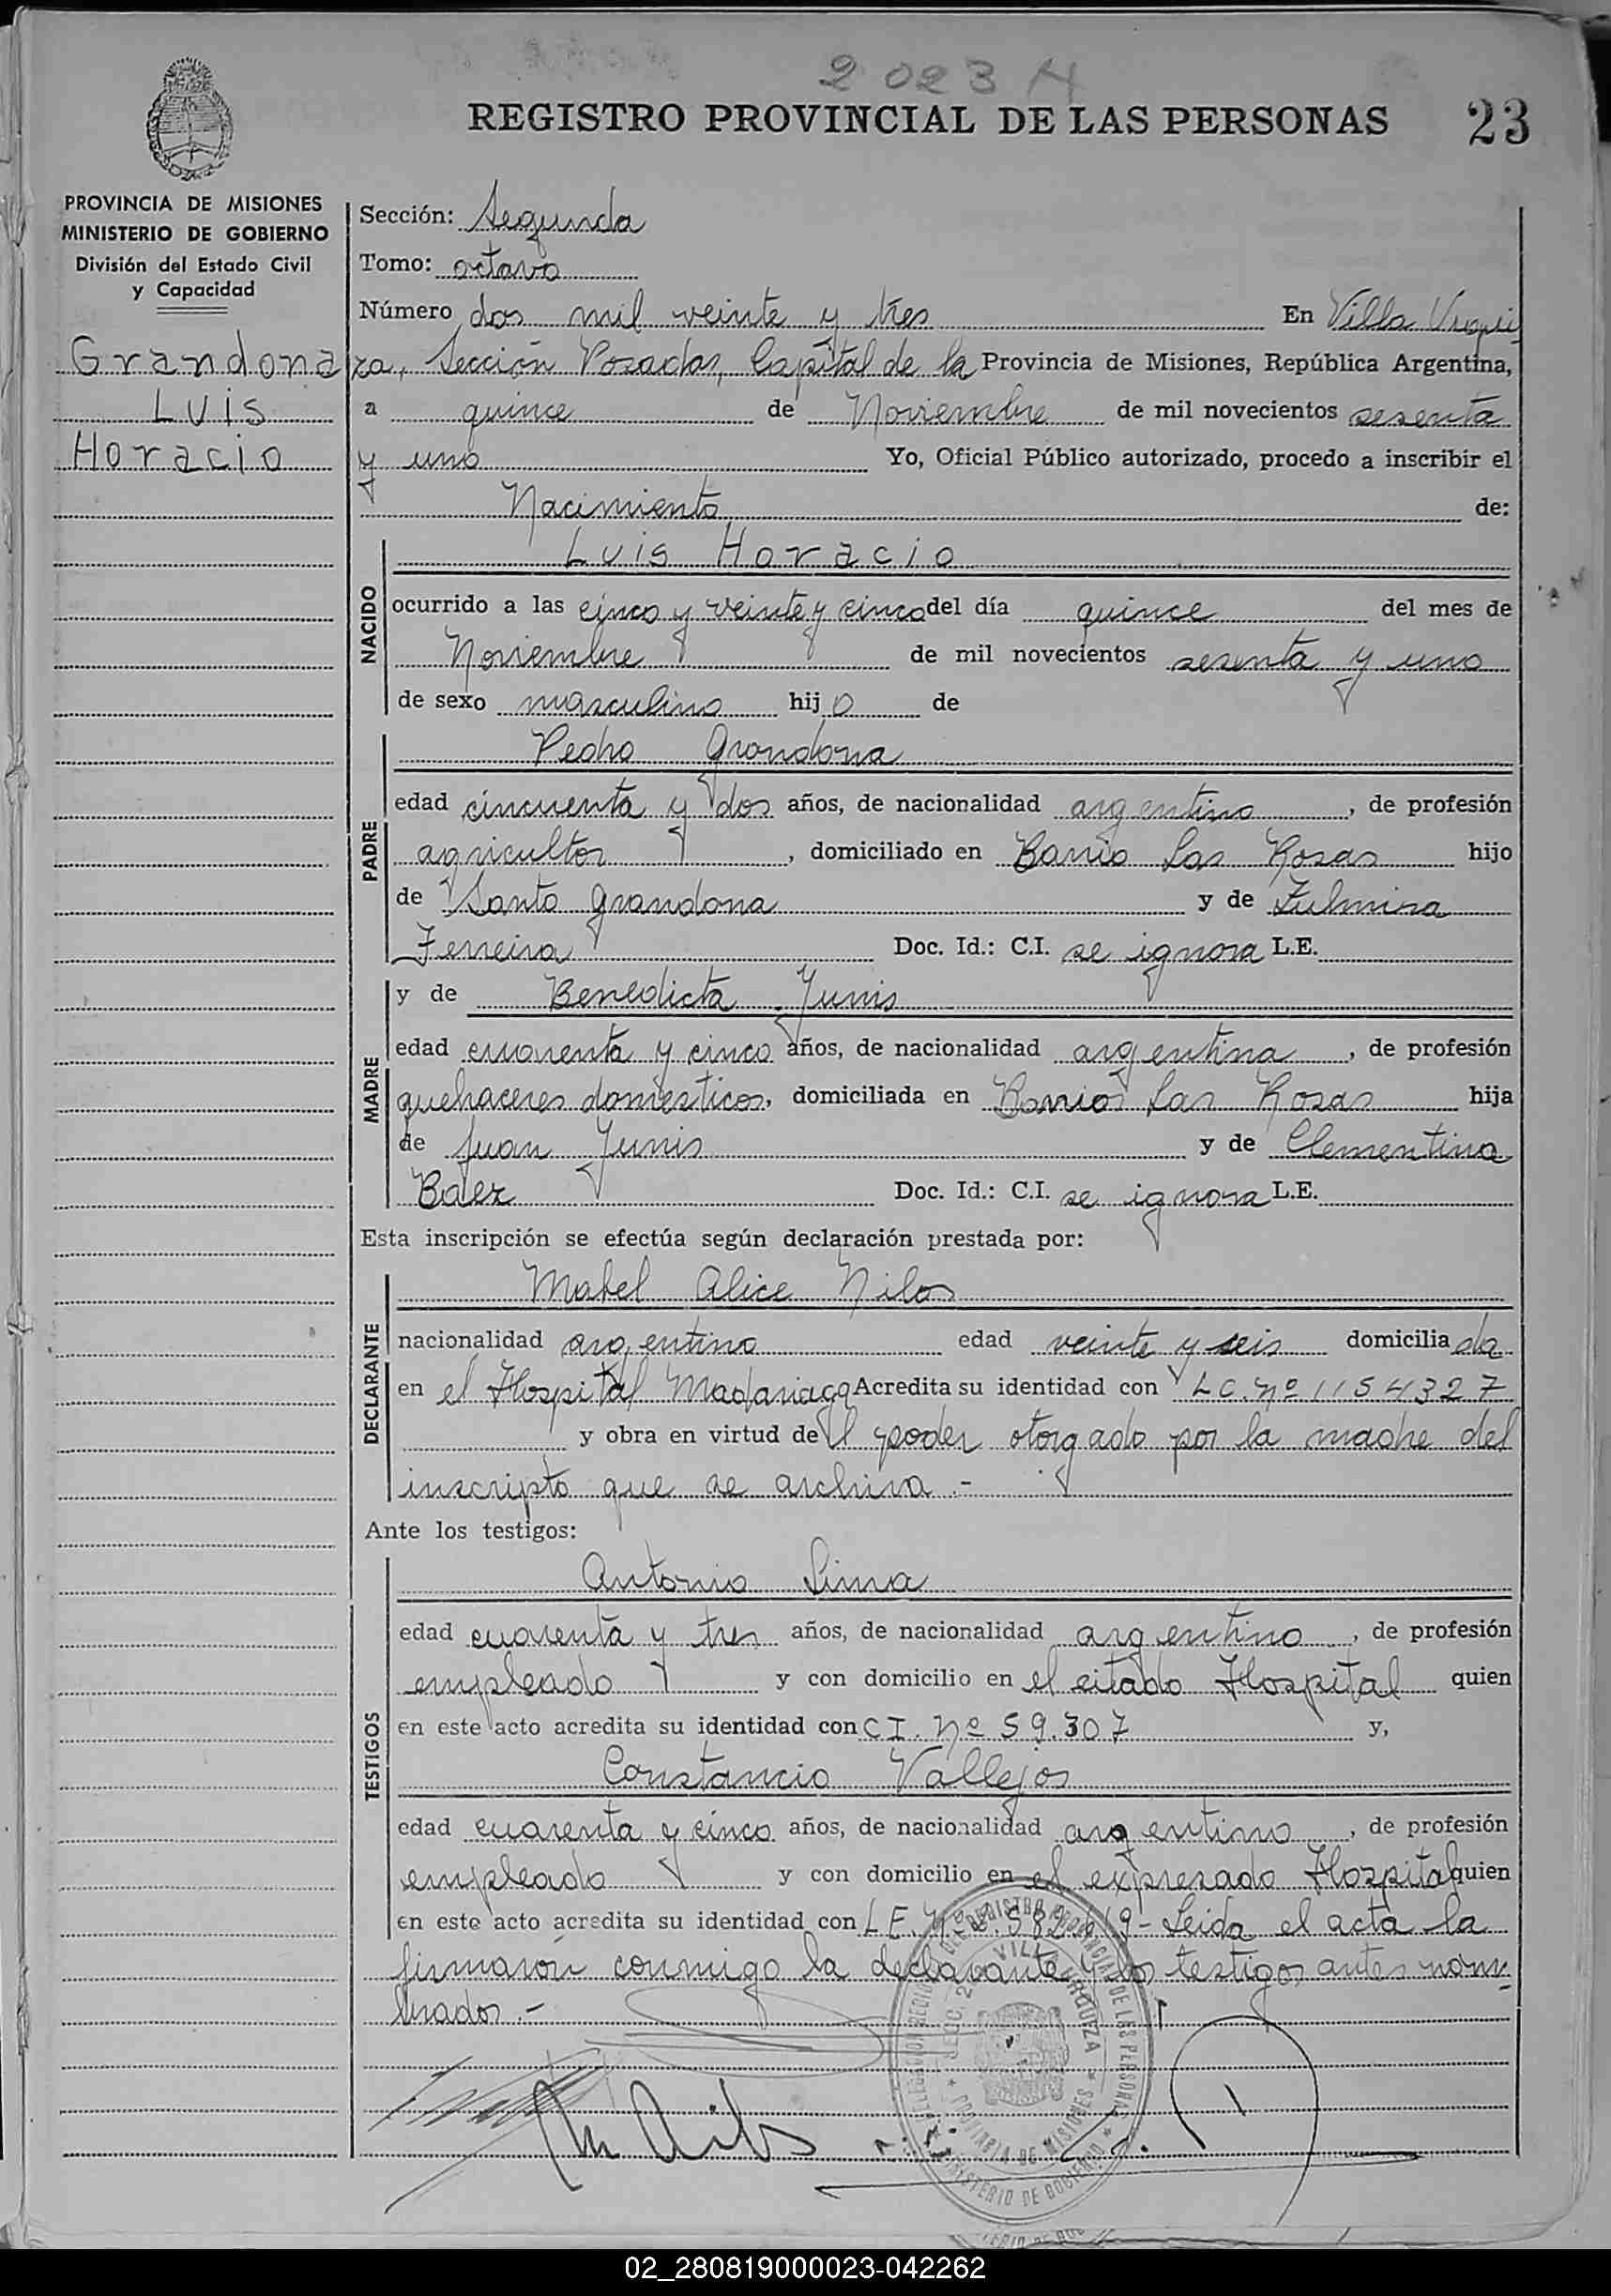 2023 N
REGISTRO PROVINCIAL DE LAS PERSONAS 23
PROVINCIA DE MISIONES
MINISTERIO DE GOBIERNO
División del Estado Civil
y Capacidad
Grandona
Luis
Horacio
Sección: Segunda
Tomo: octavo
Número dos mil veinte y tres En Villa Urqui
za, Sección Posadas, Capital de la Provincia de Misiones, República Argentina,
a quince de Noviembre de mil novecientos sesenta
y uno Yo, Oficial Público autorizado, procedo a inscribir el
Nacimiento de:
NACIDO
Luis Horacio
ocurrido a las cinco y veinte y cinco del día quince del mes de
Noviembre de mil novecientos sesenta y uno
de sexo masculino hijo de
PADRE
Pedro Grandona
edad cincuenta y dos años, de nacionalidad argentino, de profesión
agricultor, domiciliado en Barrio Las Rosas hijo
de Santo Grandona y de Zulmira
Ferreira Doc. Id.: C.I. se ignora L.E.
MADRE
y de Benedicta Yunis
edad cuarenta y cinco años, de nacionalidad argentina, de profesión
quehaceres domésticos, domiciliada en Barrio Las Rosas hija
de Juan Yunis y de Clementina
Baez Doc. Id.: C.I. se ignora L.E.
Esta inscripción se efectúa según declaración prestada por:
DECLARANTE
Mabel Alice Nilos
nacionalidad argentina edad veinte y seis domiciliada
en el Hospital Madariaga Acredita su identidad con L.C. Nº 1154327
y obra en virtud del poder otorgado por la madre del
inscripto que se archiva.-
Ante los testigos:
TESTIGOS
Antonio Lima
edad cuarenta y tres años, de nacionalidad argentino, de profesión
empleado y con domicilio en el citado Hospital quien
en este acto acredita su identidad con C I. Nº 59.307 y,
Constancio Vallejos
edad cuarenta y cinco años, de nacionalidad argentino, de profesión
empleado y con domicilio en el expresado Hospital quien
en este acto acredita su identidad con L E. - Leida el acta la
firmaron conmigo la declarante y los testigos antes nom
brados.-
VILLA URQUIZA
PROVINCIA DE MISIONES
MINISTERIO DE GOBIERNO
02_280819000023-042262